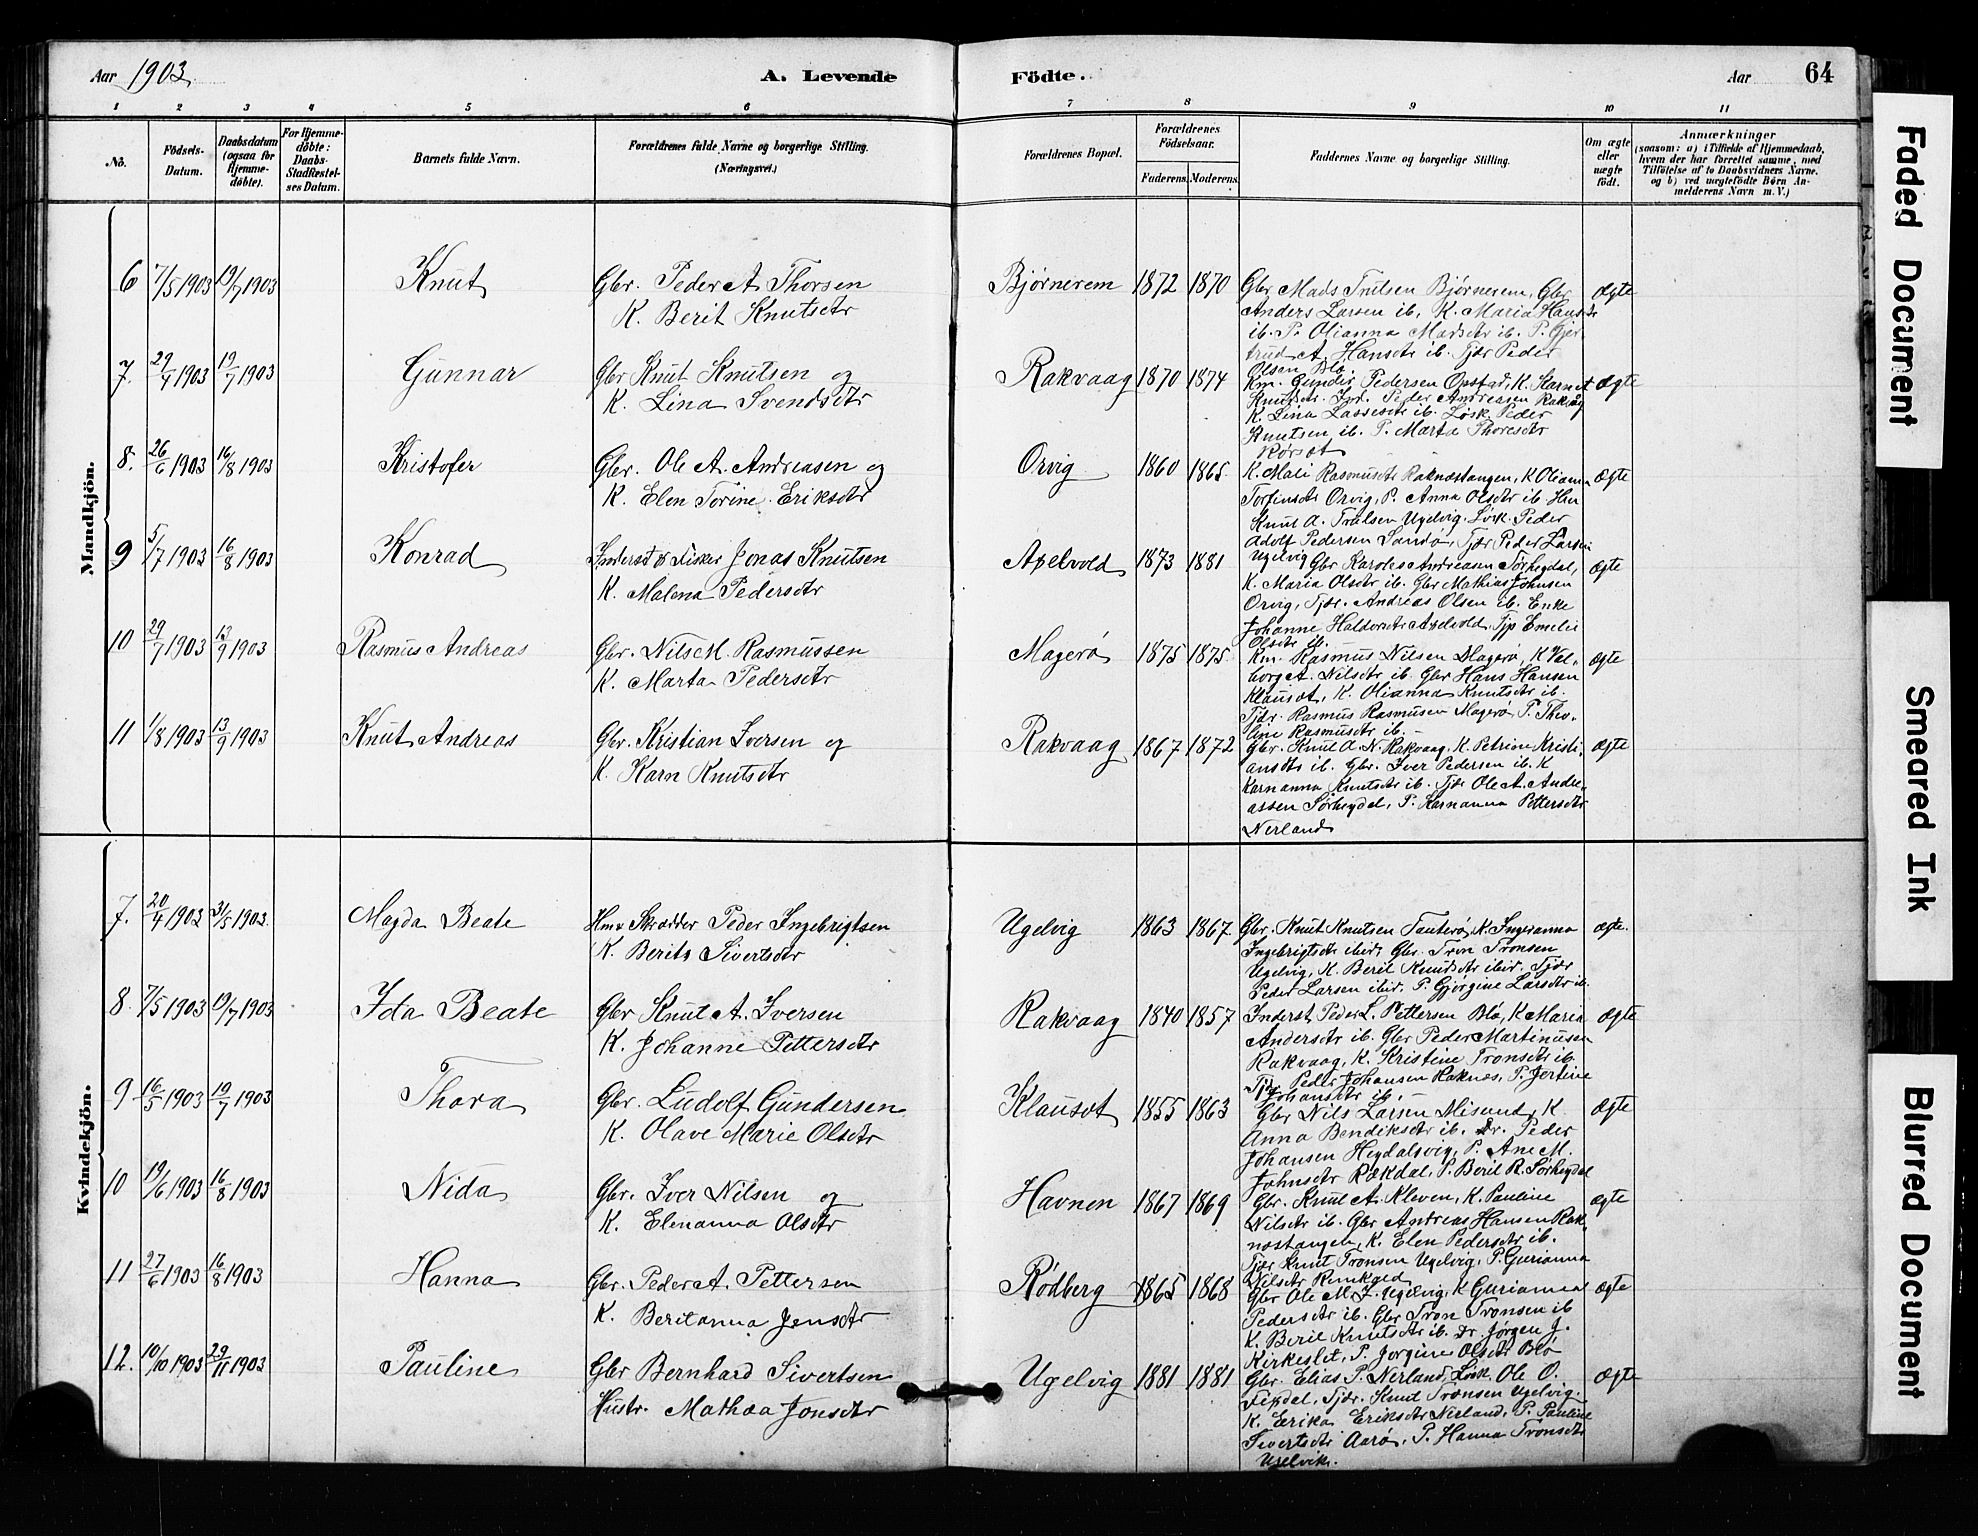 Aar 1903
A. Levende
Födte.
Aar
64
1 2 3 4 5 6 7 8 9 10 11
No.
Födsels-
Datum.
Daabsdatum
(ogsaa for
Hjemme-
döbte).
For Hjemme-
döbte:
Daabs-
Stadfæstel-
ses Datum.
Barnets fulde Navn.
Forældrenes fulde Navne og borgerlige Stilling.
(Næringsvei.)
Forældrenes Bopæl.
Forældrenes
Födselsaar.
Faderens. Moderens.
Faddernes Navne og borgerlige Stilling.
Om ægte
eller
uægte
födt.
Anmærkninger
(saasom: a) i Tilfælde af Hjemmedaab,
hvem der har forrettet samme, med
Tilföielse af to Daabsvidners Navne.
og b) ved uægtefödte Börn An-
melderens Navn m. V.)
Mandkjön.
6 7/5 1903 19/7 1903 Knut Gbr. Peder A Thorsen
K. Berit Knutsdtr
Bjørnerem 1872 1870 Gbr Mads Trulsen Bjørnerem, Gbr
Anders Larsen ib, K. Maria Hansdtr
ib. P. Olianna Madsdtr ib. P. Gjer-
trud A. Hansdtr ib. Tjzr Peder
Olsen Blø
ægte
7. 29/4 1903 19/7 1903 Gunnar Gbr Knut Knutsen og
K. Lina Svendsdtr
Rakvaag 1870 1874 Km. Gunder Pedersen Opstad, K.
Knudsdtr. Peder Andreasen Rakvåg
K. Lina Lassesdtr ib. Løsk. Peder
Knutsen ib. P. Marta Thoresdtr
Rørsæt
ægte
8. 26/6 1903 16/8 1903 Kristofer Gbr. Ole A. Andreasen og
K. Elen Torine Eriksdtr
Orvig 1860 1865. K. Mali Rasmusdtr Raknæstangen, K Olianna
Torfinsdtr Orvig, P. Anna Olsdtr ib
Knut A. Trulsen Ugelvig. Løsk. Peder
Adolf Pedersen Sandø, Tjzr Peder Larsen
Ugelvig
ægte
9 5/7 1903 16/8 1903 Konrad Inderst & Fisker Jonas Knutsen
K. Malena Pedersdtr
Axelvold 1873 1881 Gbr Karoles Andreasen Sørheydal,
K. Maria Olsdtr ib. Gbr Mathias Johnsen
Orvig, Tjzr. Andreas Olsen ib. Enke
Johanne Haldorsdtr Axelvold. Tjp Emelie
Olsdtr ib.
ægte
10 29/7 1903 13/9 1903 Rasmus Andreas Gbr. Nils M. Rasmussen
K. Marta Pedersdtr
Magerø 1875 1875. Km. Rasmus Nilsen Magerø, K Val-
borg A. Nilsdtr ib. Gbr Hans Hansen
Klauset, K. Olianna Knutsdtr ib.
Tjzr. Rasmus Rasmusen Magerø, P. Theo-
line Rasmusdtr ib.
ægte
11 1/8 1903 13/9 1903 Knut Andreas Gbr. Kristian Iversen og
K. Karn Knutsdtr
Rakvaag 1867 1872 Gbr. Knut A. N. Rakvaag, K. Petrine Kristi-
ansdtr ib. Gbr. Iver Pedersen ib. K
Karnanna Knutsdtr ib. Tjzr Ole A. Andre-
assen Sørheydal, P. Karnanna Pettersdtr
Nerland
ægte
Kvindekjön.
7. 20/4 1903 31/5 1903. Magda Beate Hmd Skrædder Peder Ingebrigtsen
K. Berits Sivertsdtr
Ugelvig 1863 1867. Gbr. Knut Knutsen Tauterø, K. Ingeranna
Ingebrigtsdtr ibid, Gbr. Tron Tronsen
Ugelvig, K. Berit Knudsdtr ibid. Tjzr
Peder Larsen ibid. P. Gjørgine Larsdtr ib.
ægte.
8. 7/5 1903 19/7 1903 Ida Beate Gbr Knut A. Iversen
K. Johanne Pettersdtr
Rakvaag 1840 1857 Inderst Peder L. Pettersen Blø, K Maria
Andersdtr ib. Gbr Peder Martinusen
Rakvaag, K. Kristine Tronsdtr ib.
Tjzr Peder Johansen Raknes, P. Jertine
Johansdtr ib.
ægte
9 16/5 1903 19/7 1903 Thora Gbr. Ludolf Gundersen
K. Olave Marie Olsdtr
Klauset 1855 1863 Gbr Nils Larsen Misund, K.
Anna Bendiksdtr ib. Dr. Peder
Johansen Heydalsvig, P. Ane M.
Johnsdtr Rakdal, P. Beril R. Sørheydal
ægte
10 19/6 1903 16/8 1903 Nida Gbr. Iver Nilsen og
K. Elenanna Olsdtr
Havnen 1867 1869 Gbr. Knut A. Kleven, K. Pauline
Nilsdtr ib. Gbr Andreas Hansen Rak-
nestangen, K. Elen Pedersdtr ib.
Tjzr Knut Tronsen Ugelvig, P. Gurianna
Nilsdtr
ægte
11 27/6 1903 16/8 1903 Hanna Gbr. Peder A. Pettersen
K. Beritanna Jensdtr
Rødberg 1865 1868 Gbr Ole M. J. Ugelvig, K Gurianna
Pedersdtr ib. Gbr Tron Tronsen ib
K. Beril Knutsdtr ib. Dr. Jørgen J.
Kirkeslet, P. Jorgine Olsdtr Blø
ægte
12. 10/10 1903 29/11 1903 Pauline Gbr Bernhard Sivertsen
Hustr. Mathea Jonsdtr
Ugelvig 1881 1881 Gbr. Elias P. Nerland, Løsk. Ole O.
Tjzr. Knut Tronsen Ugelvig.
K. Erika Eriksdtr Nerland, P. Pauline
Sivertsdtr Aarø, P. Hanna Tronsdtr
Ugelvik.
ægte
Faded Document
Smeared Ink
Blurred Document